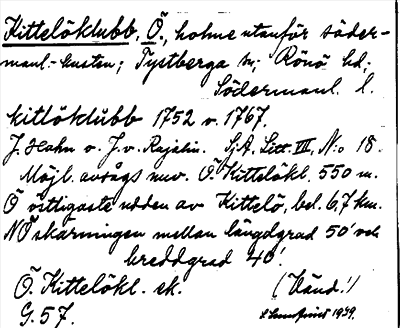 Kittelöklubb, Ö., holme utanför söder-
manl.-kusten; Tystberga sn; Rönö hd;
Södermanl. l.
kitlöklubb 1752 v. 1767.
J. Hahn v. J. v. Rajalin. Sj.A. Litt. VII, N:o 18.
Möjl. avsågs nuv. Ö. Kittelökl. 550 m.
Ö östligaste udden av Kittelö, bel. 6,7 km.
NÖ skärningen mellan längdgrad 50' och
breddgrad 40'.
Ö. Kittelökl. ek. (Vänd!)
G. 57. 1939.